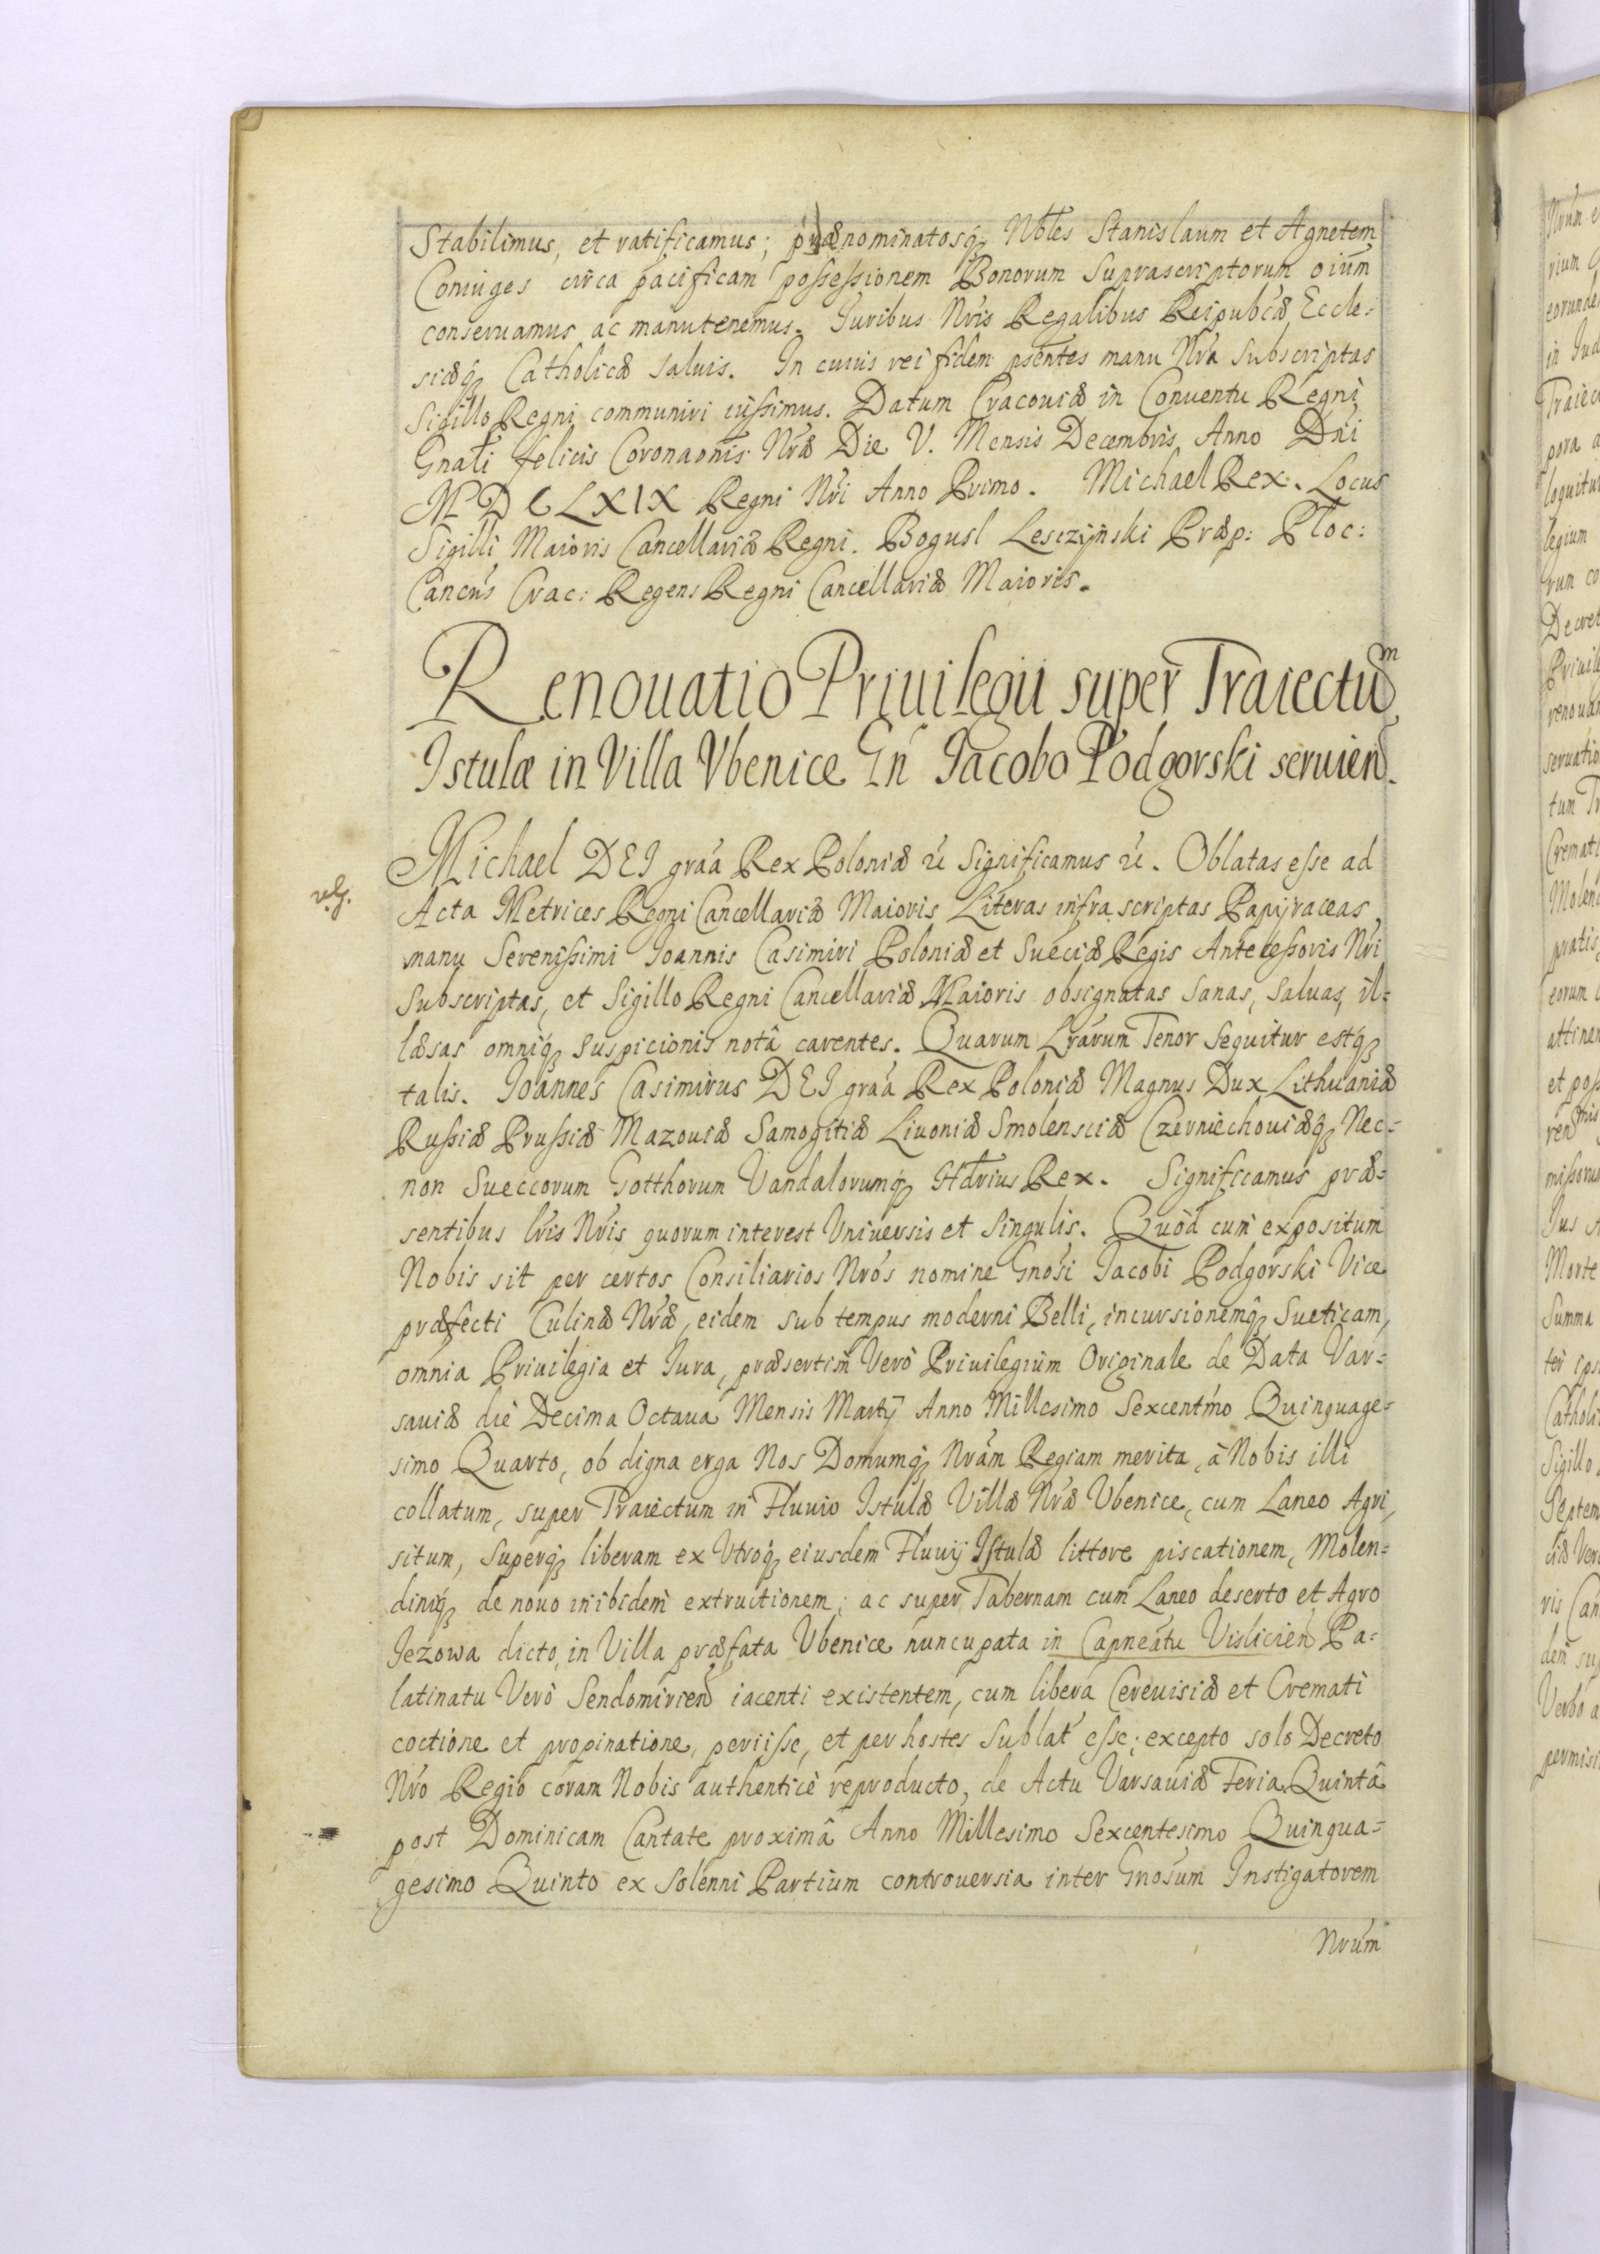 Stabilimus, et ratificamus; prænominatosq₃ Nbles Stanislaum et Agnetem
Coniuges circa pacificam possessionem Bonorum Suprascriptorum oium̄
conseruamus ac manutenemus. Juribus Nris Regalibus Reipubcæ Eccle:
siæq₃ Catholicæ saluis. In cuius rei fidem psentes manu Nra Subscriptas
Sigillo Regni communiri iussimus. Datum Cracouiæ in Conuentu Regni
Gnali felicis Coronaonis Nræ Die V. Mensis Decembris Anno Dni
MDCLXIX Regni Nri Anno Primo. Michael Rex. Locus
Sigilli Maioris Cancellariæ Regni. Bogusl Lesczÿnski Præp: Ploc:
Cancus Crac: Regens Regni Cancellariæ Maioris.
Renouatio Priuilegii super Traiectum
Istulæ in Villa Vbenice Gn Jacobo Podgorski seruien.
Michael DEI graa Rex Poloniæ &c Significamus &c. Oblatas esse ad
Acta Metrices Regni Cancellariæ Maioris Literas infra scriptas Papÿraceas
manu Serenissimi Joannis Casimiri Poloniæ et Sueciæ Regis Antecessoris Nri
Subscriptas, et Sigillo Regni Cancellariæ Maioris obsignatas Sanas, Saluas, il=
læsas omniq₃ suspicionis notâ carentes. Quarum Lrarum Tenor Sequitur estq₃
talis. Joannes Casimirus DEI graa Rex Poloniæ Magnus Dux Lithuaniæ
Russiæ Prussiæ Mazouiæ Samogitiæ Liuoniæ Smolensciæ Czerniechouiæq₃ Nec=
non Sueccorum Gotthorum Vandalorumq₃ Hdrius Rex. Significamus præ=
sentibus lris Nris quorum interest Vniuersis et Singulis. Quòd cum expositum
Nobis sit per certos Consiliarios Nros nomine Gnosi Jacobi Podgorski Vice
præfecti Culinæ Nræ, eidem sub tempus moderni Belli, incursionemq₃ Sueticam,
omnia Priuilegia et Iura, præsertim Verò Priuilegium Originale de Data Var=
sauiæ die Decima Octaua Mensis Martÿ Anno Millesimo Sexcentmo Quinquage=
simo Quarto, ob digna erga Nos Domumq₃ Nram Regiam merita, à Nobis illi
collatum, super Traiectum in Fluuio Istulæ Villæ Nræ Vbenice, cum Laneo Agri,
situm, Superq₃ liberam ex Vtroq₃ eiusdem Fluuij Istulæ littore piscationem, Molen=
diniq₃ de nouo inibidem extructionem; ac super Tabernam cum Laneo deserto et Agro
Jezowa dicto, in Villa præfata Vbenice nuncupata in Capneatu Vislicien Pa=
latinatu Verò Sendomirien iacenti existentem, cum libera Cereuisiæ et Cremati
coctione et propinatione, periisse, et per hostes Sublat esse; excepto solo Decreto
Nro Regio coram Nobis authenticè reproducto, de Actu Varsauiæ Feria Quintâ
post Dominicam Cantate proximâ Anno Millesimo Sexcentesimo Quinqua=
gesimo Quinto ex Solenni Partium controuersia inter Gnosum Instigatorem
Nrum